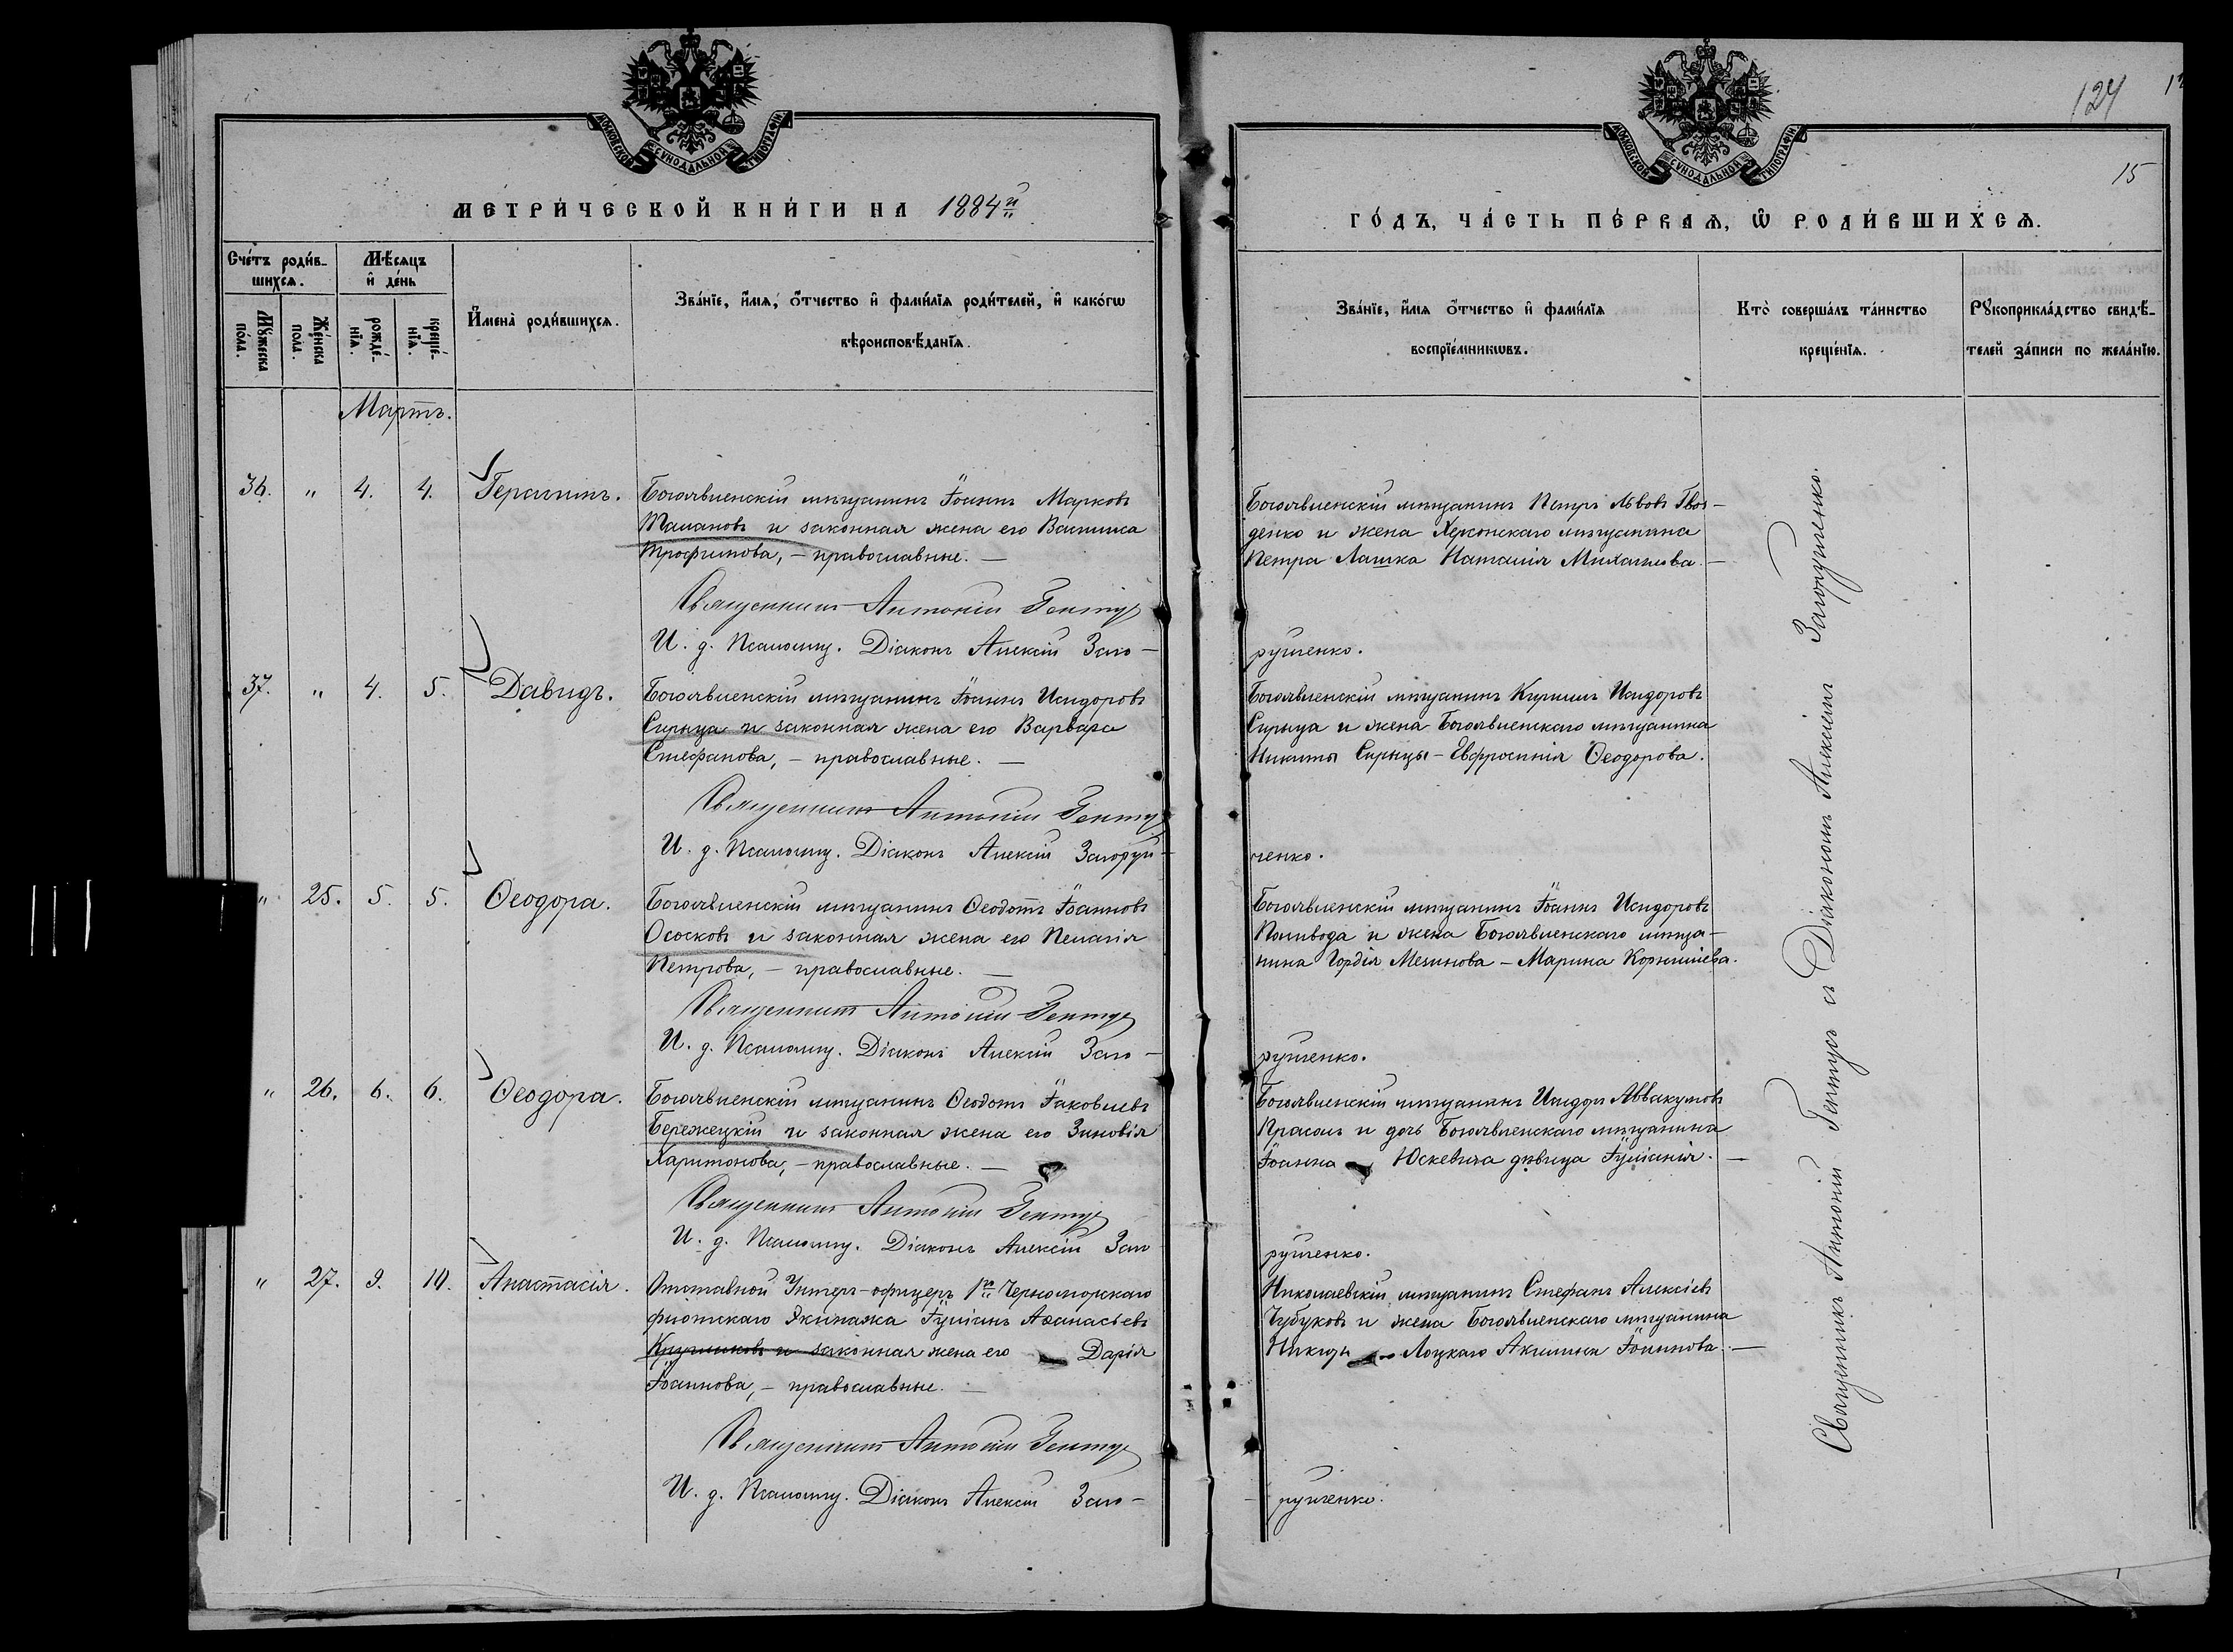 МОСКОВСКОЙ СУНОДАЛЬНОЙ ТИПОГРАФІИ
МЕТРИ́ЧЕСКОЙ КНИ́ГИ НА 1884й
Сче́тъ роди́в-
шихсѧ.
Мѣ́сѧцъ
и҆ де́нь
Мꙋ́жеска
по́ла.
Же́нска
пола.
рожде́-
нїѧ.
креще́-
нїѧ.
И҆мена̀ роди́вшихсѧ.
Зва́нїе, и҆́мѧ, ѻ҆́тчество и҆ фами́лїѧ роди́телей, и҆ како́гѡ
вѣроисповѣ́данїѧ.
Мартъ.
36. " 4. 4. Герасимъ.
Богоявленскій мѣщанинъ Іоаннъ Марковъ
Таманов и законная жена его Василиса
Трофимова, – православные. –
Священникъ Антоній Гентуъ
И. д. Псаломщ. Діаконъ Алексій Заго-
37. " 4. 5. Давидъ.
Богоявленскій мѣщанинъ Іоаннъ Исидоровъ
Сирица и законная жена его Варвара
Стефанова, – православные. –
Священникъ Антоній
И. д. Псаломщ. Діаконъ Алексій Загоруй-
" 25. 5. 5. Ѳеодора.
Богоявленскій мѣщанинъ Ѳеодотъ Іоанновъ
Ососковъ и законная жена его Пелагія
Петрова, – православные. –
Священникъ Антоній
И. д. Псаломщ. Діаконъ Алексій Заго-
" 26. 6. 6. Ѳеодора.
Богоявленскій мѣщанинъ Ѳеодотъ Іаковлевъ
Бережецкій и законная жена его Зиновія
Харитонова, – православные. –
Священникъ Антоній
И. д. Псаломщ. Діаконъ Алексій Заго
" 27. 9. 10. Анастасія.
Отставной Унтеръ-офицеръ 1го Черноморскаго
флотскаго Экипажа Іуліанъ Аѳанасьевъ
и законная жена его Дарія
Іоаннова, – православные. –
Священникъ Антоній
И. д. Псаломщ. Діаконъ Алексій Заго-
124
15
МОСКОВСКОЙ СУНОДАЛЬНОЙ ТИПОГРАФІИ
ГО́ДЪ, ЧА́СТЬ ПЕ́РВАѦ, Ѽ РОДИ́ВШИХСѦ.
Зва́нїе, и҆́мѧ ѻ҆́тчество и҆ фами́лїѧ
воспрїе́мникѡвъ.
Кто̀ соверша́лъ та́инство
креще́нїѧ.
Рꙋкоприкла́дство свидѣ́-
телей за́писи по жела́нїю.
Богоявленскій мѣщанинъ Петръ Львовъ Гвоз-
денко и жена Херсонскаго мѣщанина
Петра Лашка Наталія Михаилова. –
руйченко.
Богоявленскій мѣщанинъ Кириллъ Исидоровъ
Сирица и жена Богоявленскаго мѣщанина
Никиты Сирицы – Евфросинія Ѳеодорова.
ченко.
Богоявленскій мѣщанинъ Іоаннъ Исидоровъ
Поливода и жена Богоявленскаго мѣща-
нина Гордія Мезинова – Марина Корниліева.
руйченко.
Богоявленскій мѣщанинъ Исидоръ Аввакумовъ
Красоль и дочь Богоявленскаго мѣщанина
Іоанна Юскевича дѣвица Іуліанія. –
руйченко.
Николаевскій мѣщанинъ Стефанъ Алексіевъ
Чубуковъ и жена Богоявленскаго мѣщанина
Лоцкаго Акилина Іоаннова. –
руйченко.
Священникъ Антоній съ Діакономъ Алексіемъ Загоруйченко.